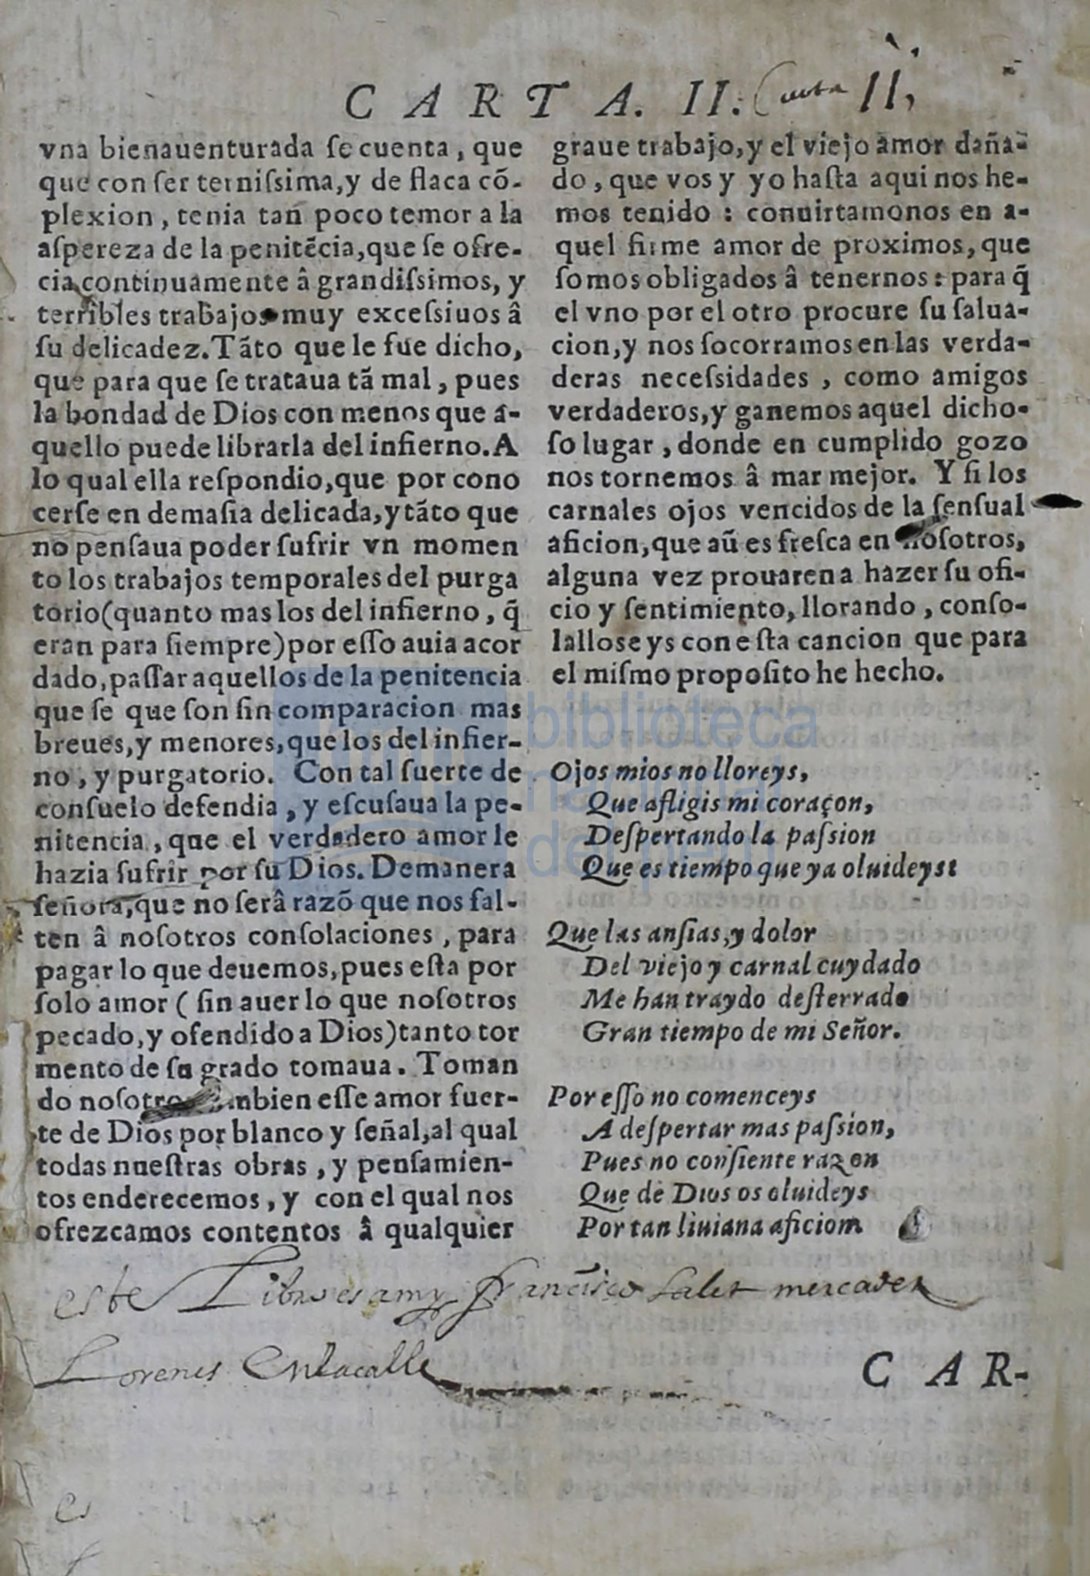 CARTA. II. Carta II,
vna bienauenturada se cuenta, que
que con ser ternissima, y de flaca cõ-
plexion, tenia tan poco temor a la
aspereza de la penitẽcia, que se ofre-
cia continuamente â grandissimos, y
terribles trabajos muy excessiuos â
su delicadez. Tãto que le fue dicho,
que para que se trataua tã mal, pues
la bondad de Dios con menos que a-
quello puede librarla del infierno. A
lo qual ella respondio, que por cono
cerse en demasia delicada, y tãto que
no pensaua poder sufrir vn momen
to los trabajos temporales del purga
torio (quanto mas los del infierno, q̃
eran para siempre) por esso auia acor
dado, passar aquellos de la penitencia
que se que son sin comparacion mas
breues, y menores, que los del infier-
no, y purgatorio. Con tal suerte de
consuelo defendia, y escusaua la pe-
nitencia, que el verdadero amor le
hazia sufrir por su Dios. Demanera
señora, que no serâ razõ que nos fal-
ten â nosotros consolaciones, para
pagar lo que deuemos, pues esta por
solo amor (sin auer lo que nosotros
pecado, y ofendido a Dios) tanto tor
mento de su grado tomaua. Toman
do nosotros tambien esse amor fuer-
te de Dios por blanco y señal, al qual
todas nuestras obras, y pensamien-
tos enderecemos, y con el qual nos
ofrezcamos contentos â qualquier
graue trabajo, y el viejo amor daña-
do, que vos y yo hasta aqui nos he-
mos tenido: conuirtamonos en a-
quel firme amor de proximos, que
somos obligados â tenernos: para q̃
el vno por el otro procure su salua-
cion, y nos socorramos en las verda-
deras necessidades, como amigos
verdaderos, y ganemos aquel dicho-
so lugar, donde en cumplido gozo
nos tornemos â mar mejor. Y si los
carnales ojos vencidos de la sensual
aficion, que aũ es fresca en nosotros,
alguna vez prouaren a hazer su ofi-
cio y sentimiento, llorando, conso-
lallos eys con esta cancion que para
el mismo proposito he hecho.
Ojos mios no lloreys,
Que afligis mi coraçon,
Despertando la passion
Que es tiempo que ya oluideys:
Que las ansias, y dolor
Del viejo y carnal cuydado
Me han traydo desterrado
Gran tiempo de mi Señor.
Por esso no comenceys
A despertar mas passion,
Pues no consiente razon
Que de Dios os oluideys
Por tan liuiana aficiom
este Libro es amy francisco salet mercader
Lorenes Enlacalle
CAR-
es
biblioteca
nacional
de españa